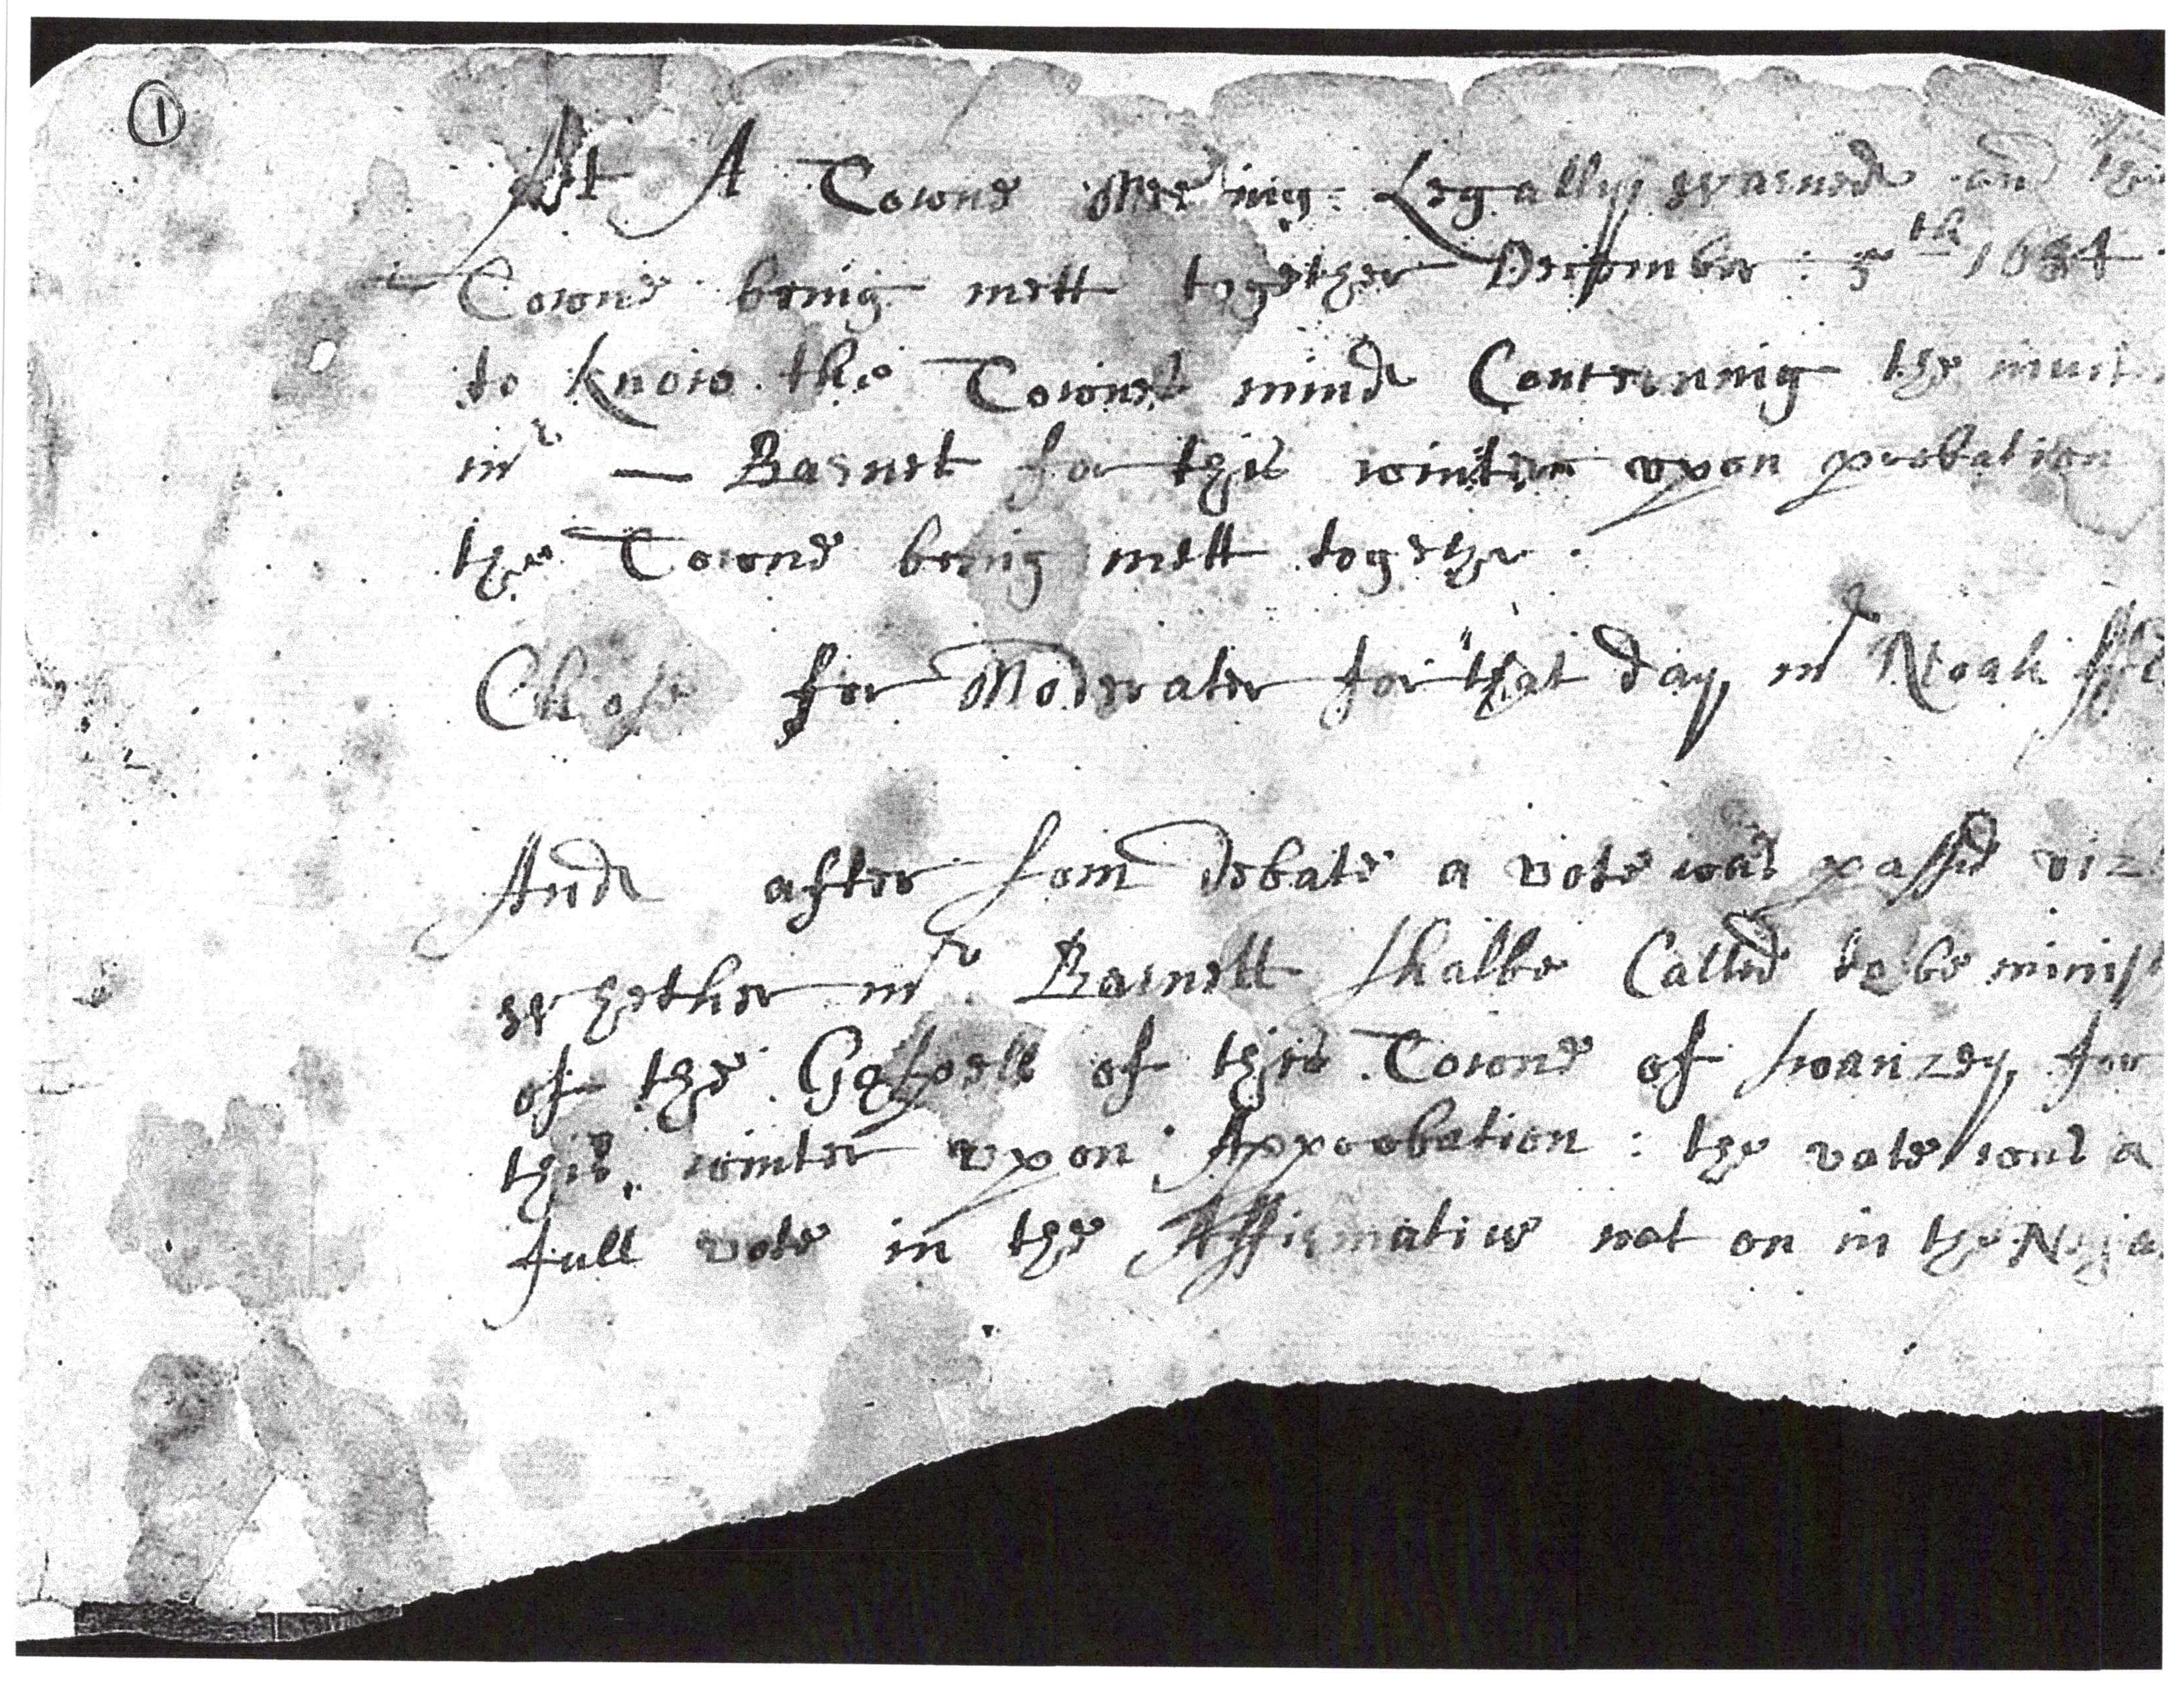 ①
At A Towne Meeting Legally warned and the
Towne being mett together December : 5th 1684
to know the Townes mind Concerning the
mr — Barnet for this winter vpon probation
the Towne being mett together .
Chose for Moderater for that day mr Noah
And after som debate a vote was passed viz
whether mr Barnett shalbe Called to be minist
of the Gospell of this Towne of swanzey for
this winter vpon Approobation : the vote was a
full vote in the Affirmative not on in the Nega